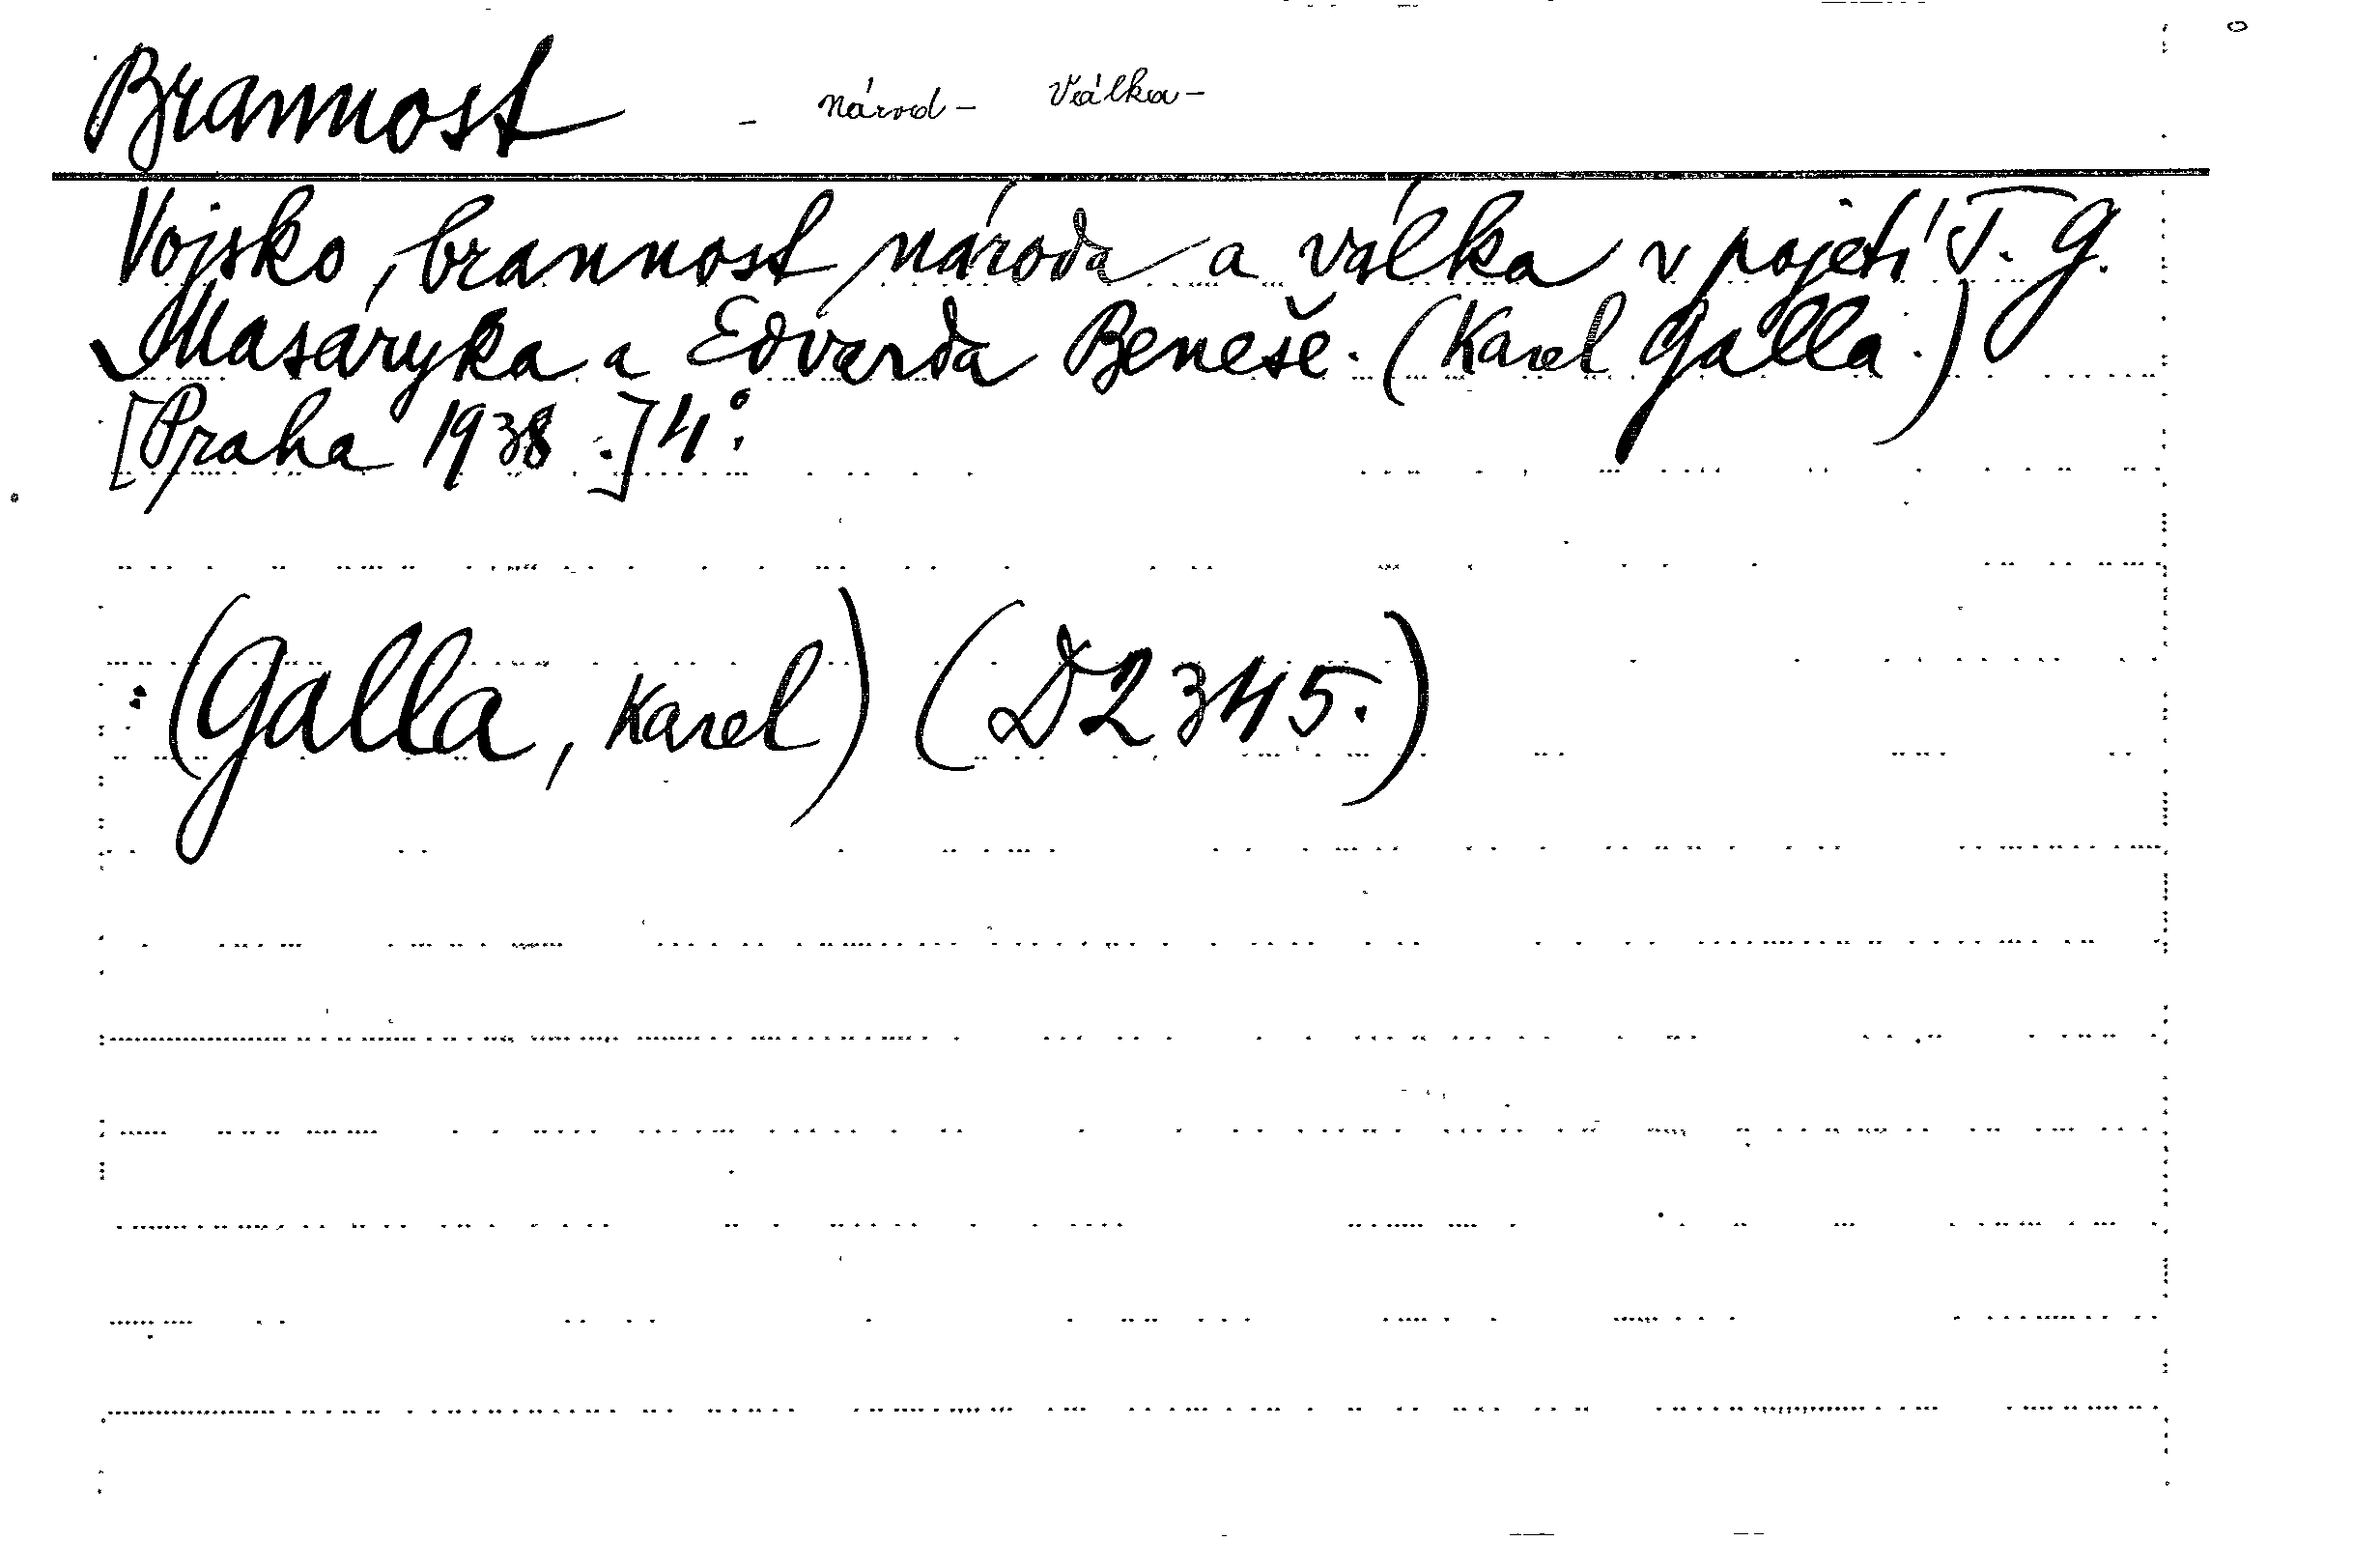 Brannost - národ - Válka -
Vojsko, brannost národa a válka v pojetí T. G.
Masaryka a Edvarda Beneše. (Karel Galla.)
[Praha 1938.] 4°.
(Galla, Karel) (D2345.)